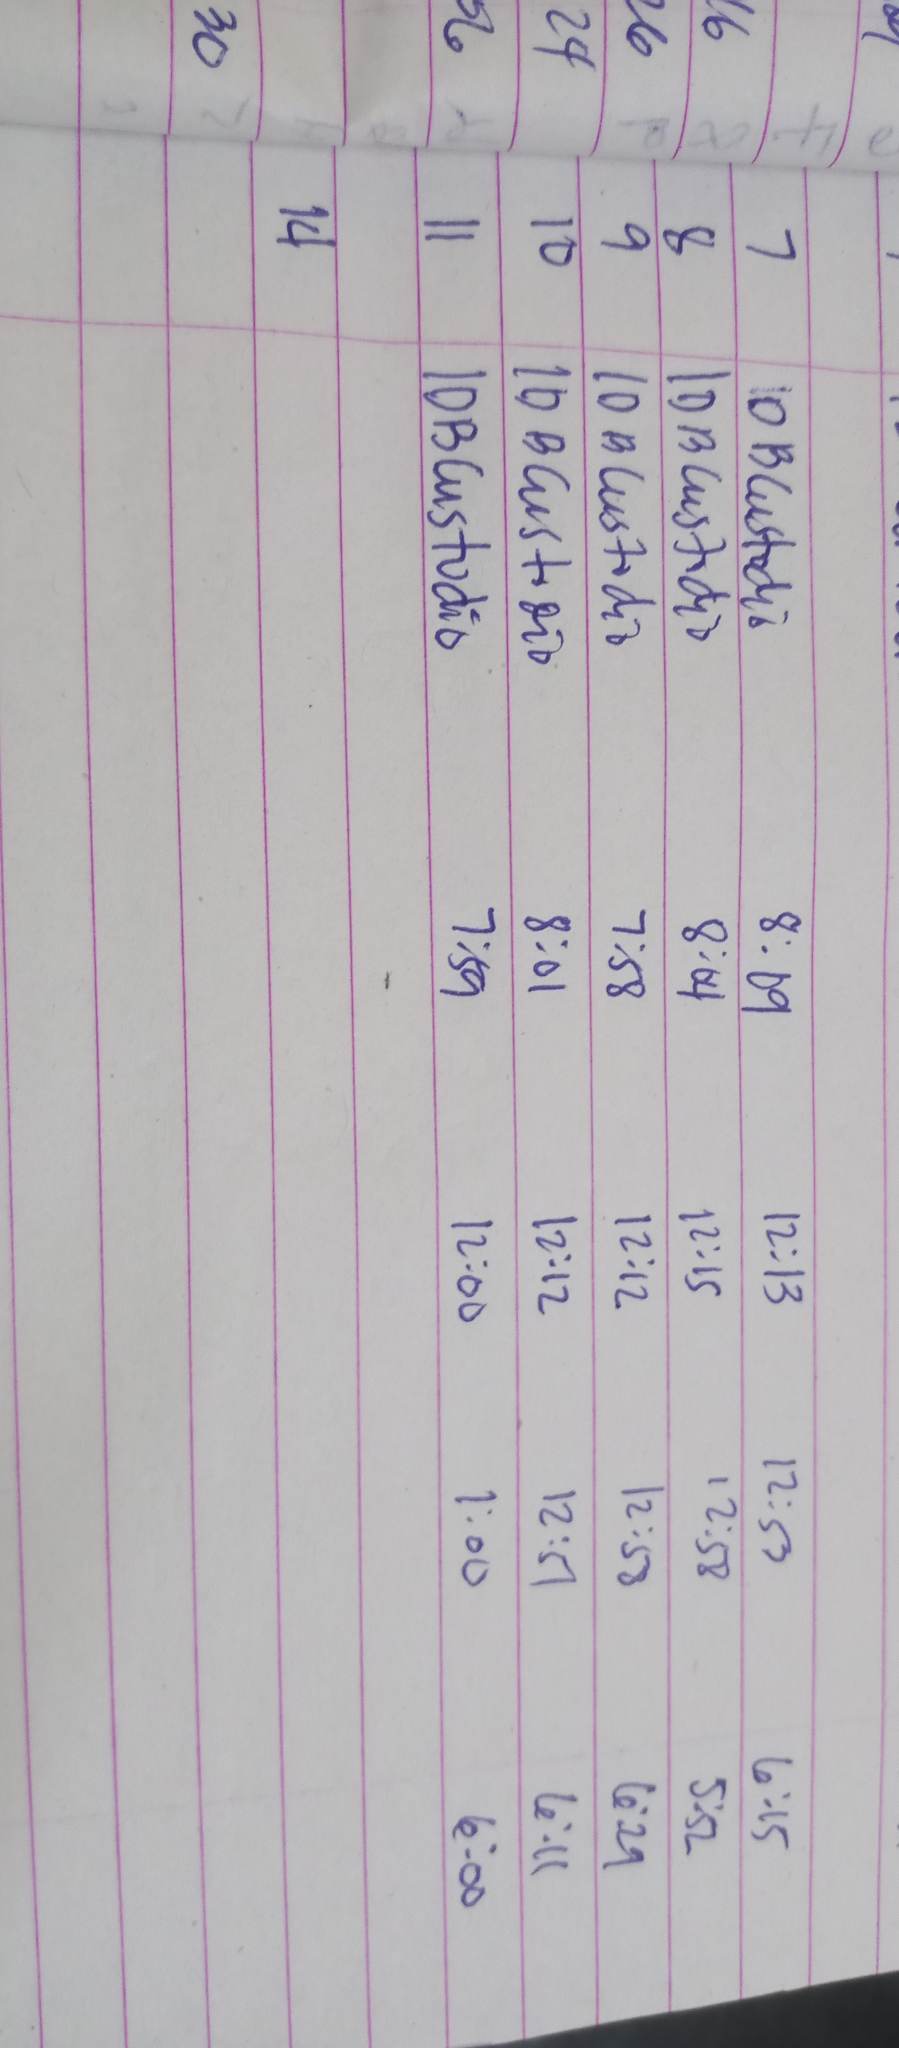 7 10 BCustodio 8:09 12:13 12:53 6:15
8 10 BCustodio 8:04 12:15 12:58 5:52
9 10 BCustodio 7:58 12:12 12:58 6:29
10 10 BCustodio 8:01 12:12 12:51 6:11
11 10 BCustodio 7:59 12:00 1:00 6:00
14
16
26
24
56
30